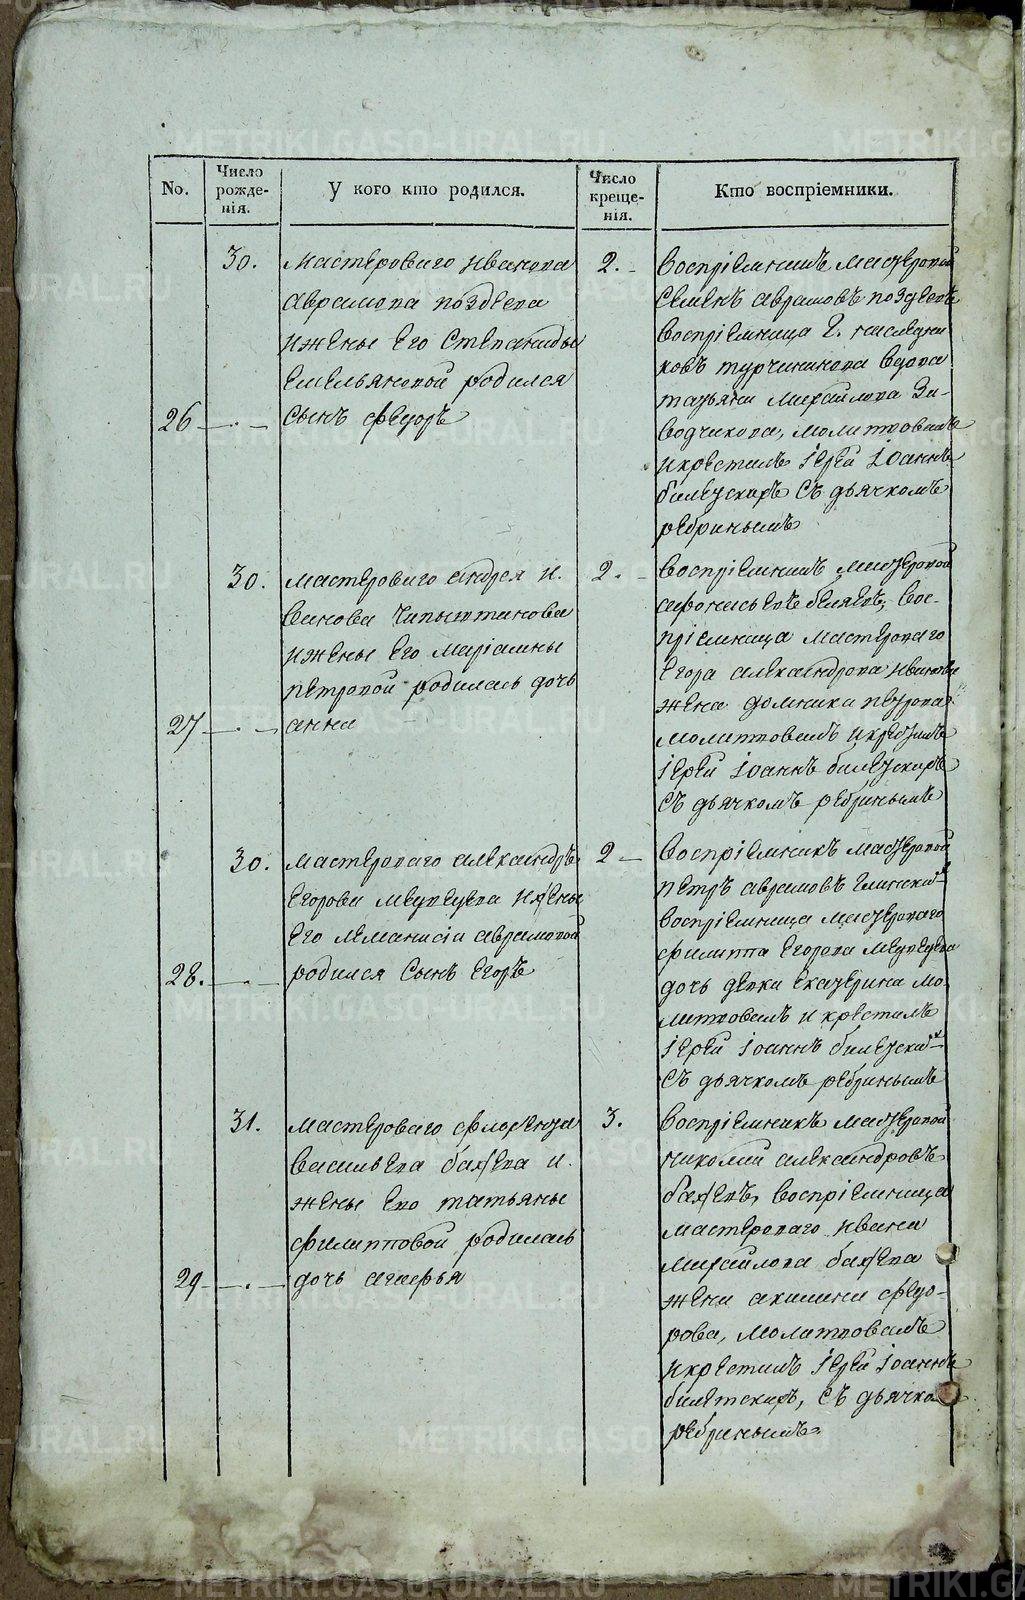 No.
Число рожде-нія.
У кого кто родился.
Число креще-нія.
Кто воспріемники.
26
30.
мастероваго Ивана
аврамова поздеева
ижены его степаниды
емельяновой родился
сынъ федоръ
2.
воспріемникъ мастеровой
семенъ аврамовъ поздеевъ
воспріемница г. наследни
ковъ турчининова вдова
татьяна михайлова За-
водчикова, молитвовалъ
икрестилъ іерей іоаннъ
съ дьячкомъ
ребринымъ
27
30.
мастероваго андрея и.
ванова
ижены его маріамны
петровой родилась дочь
анна
2.
воспріемникъ мастеровой
афонасъевъ беляевъ, вос-
пріемница мастероваго
егора александрова иванова
жена домника петрова
молитвовалъ икрестилъ
іерей іоаннъ
съ дьячкомъ ребринымъ
28.
30.
мастероваго александръ
егорова медведева ижены
его аврамовой
родился сынъ егоръ
2
воспріемникъ мастеровой
петръ аврамовъ глинскихъ
воспріемница мастероваго
филиппа егорова медведева
дочь девка екатерина мо
литвовалъ и крестилъ
іерей іоаннъ
съ дьячкомъ ребринымъ
29
31.
мастероваго флорента
васильева бажева и.
жены его татьяны
филипповой родилась
дочь агафья
3.
воспріемникъ мастеровой
николай александровъ
бажевъ, воспріемница
мастероваго ивана
михайлова бажева
жена акилина федо-
рова, молитвовалъ
икрестилъ іерей іоаннъ
съ дьячко
ребринымъ
METRIKI.GASO-URAL.RU